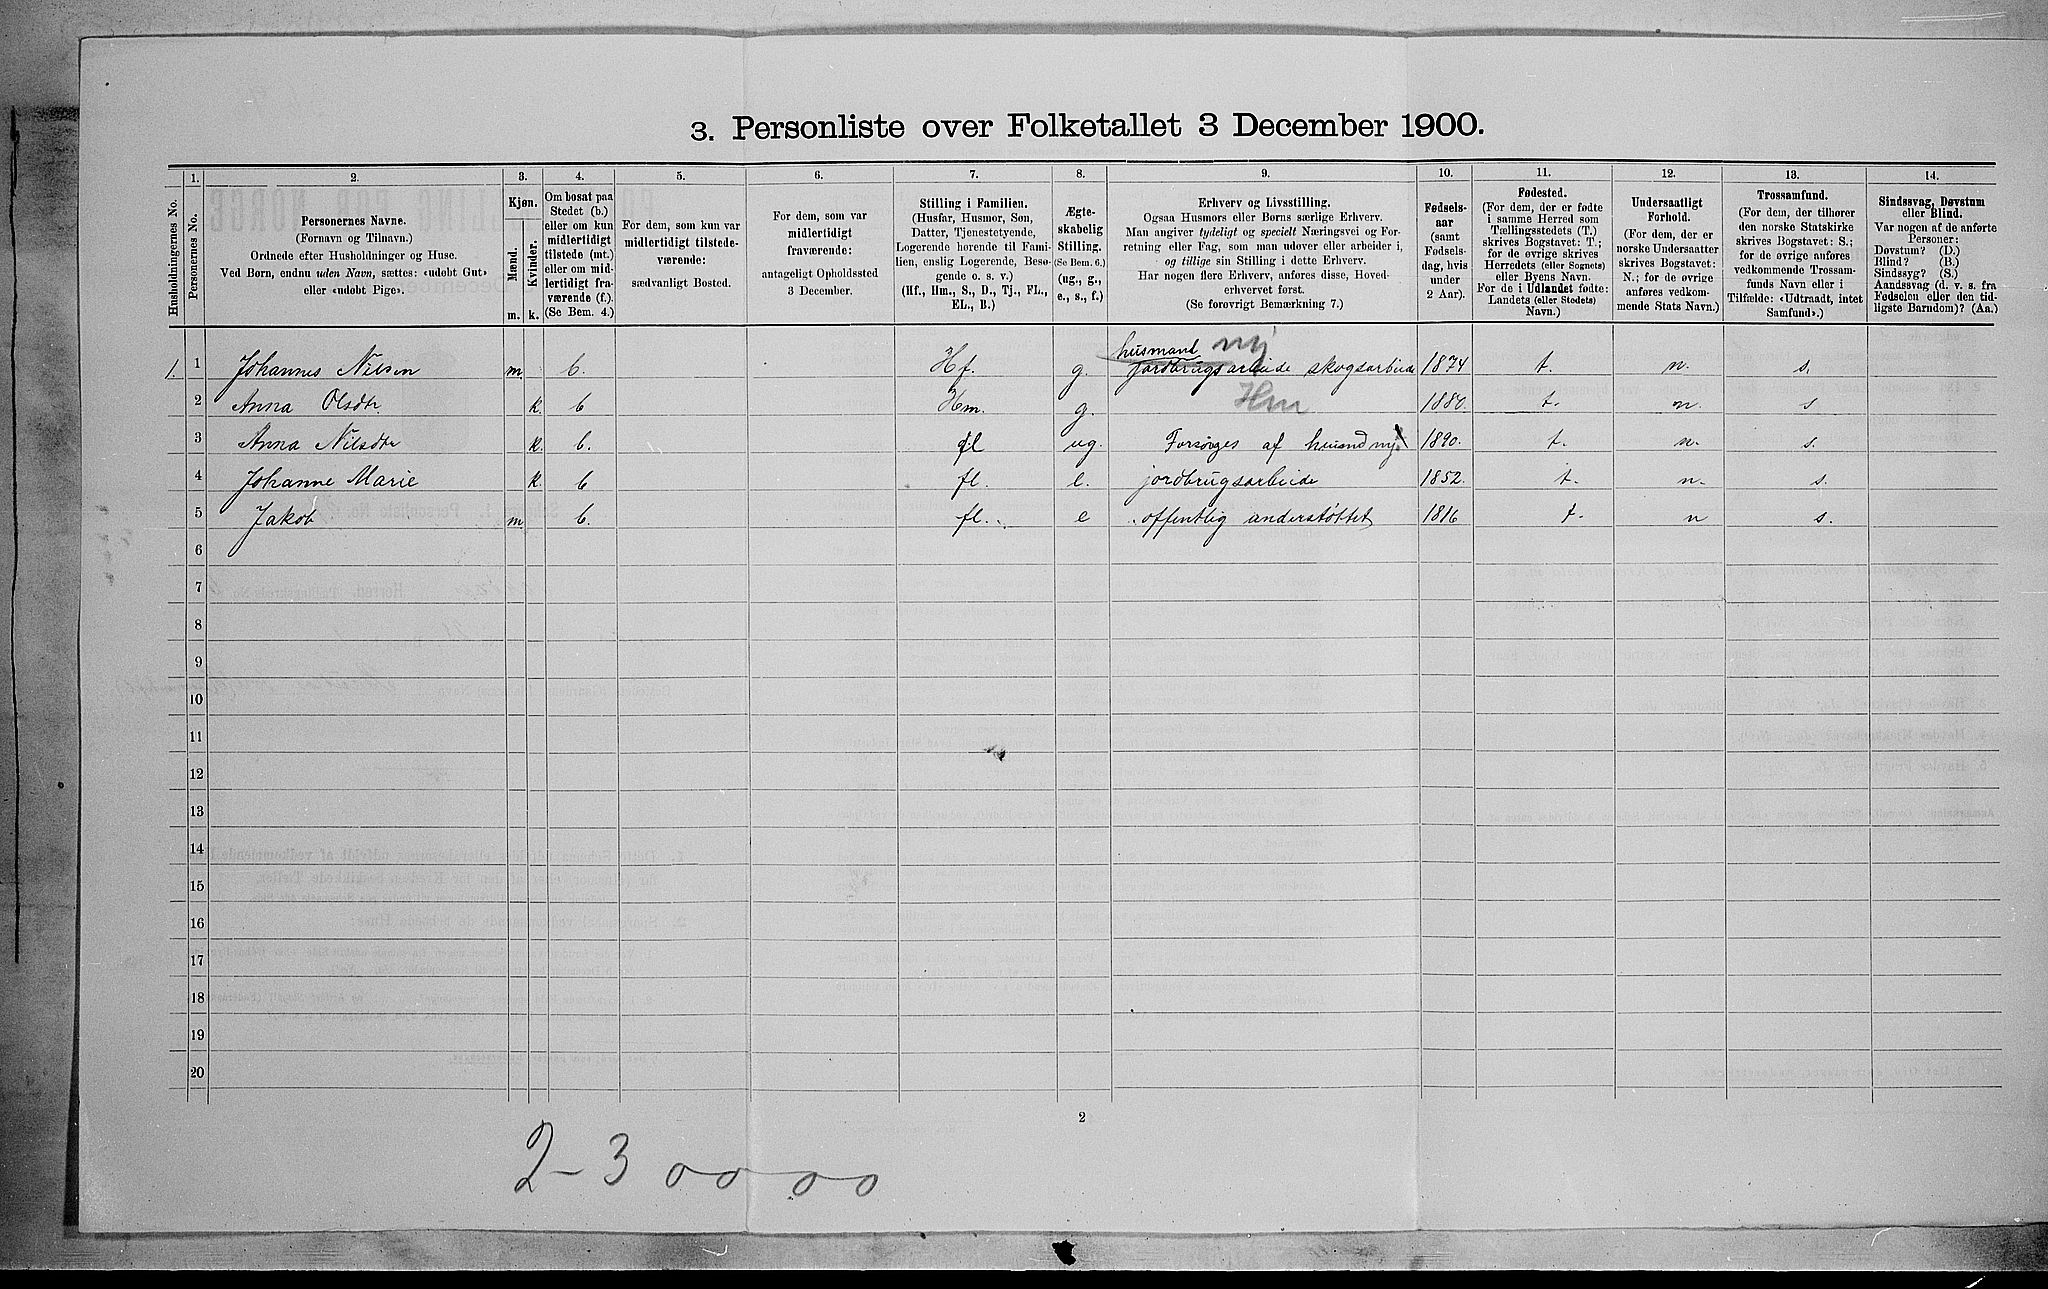 3. Personliste over Folketallet 3 December 1900.
1. 2. 3. 4. 5. 6. 7. 8. 9. 10. 11. 12. 13. 14.
Husholdningernes No.
Personernes No.
Personernes Navne.
(Fornavn og Tilnavn.)
Ordnede efter Husholdninger og Huse.
Ved Børn, endnu uden Navn, sættes: «udøbt Gut»
eller «udøbt Pige».
Kjøn.
Mænd.
Kvinder.
m. k.
Om bosat paa
Stedet (b.)
eller om kun
midlertidigt
tilstede (mt.)
eller om mid-
lertidigt fra-
værende (f.)
(Se Bem. 4.)
For dem, som kun var
midlertidigt tilstede-
værende:
sædvanligt Bosted.
For dem, som var
midlertidigt
fraværende:
antageligt Opholdssted
3 December.
Stilling i Familien.
(Husfar, Husmor, Søn,
Datter, Tjenestetyende,
Logerende hørende til Fami-
lien, enslig Logerende, Besø-
gende o. s. v.)
(Hf., Hm., S., D., Tj., FL.,
EL., B.)
Ægte-
skabelig
Stilling.
(Se Bem. 6.)
(ug., g.,
e., s., f.)
Erhverv og Livsstilling.
Ogsaa Husmors eller Børns særlige Erhverv.
Man angiver tydeligt og specielt Næringsvei og For-
retning eller Fag, som man udøver eller arbeider i,
og tillige sin Stilling i dette Erhverv.
Har nogen flere Erhverv, anføres disse, Hoved-
erhvervet først.
(Se forøvrigt Bemærkning 7.)
Fødsels-
aar
(samt
Fødsels-
dag, hvis
under
2 Aar).
Fødested.
(For dem, der er fødte
i samme Herred som
Tællingsstedets (T.)
skrives Bogstavet: T.;
for de øvrige skrives
Herredets (eller Sognets)
eller Byens Navn.
For de i Udlandet fødte:
Landets (eller Stedets)
Navn.)
Undersaatligt
Forhold.
(For dem, der er
norske Undersaatter
skrives Bogstavet:
N.; for de øvrige
anføres vedkom-
mende Stats Navn.)
Trossamfund.
(For dem, der tilhører
den norske Statskirke
skrives Bogstavet: S.;
for de øvrige anføres
vedkommende Trossam-
funds Navn eller i
Tilfælde: «Udtraadt, intet
Samfund».)
Sindssvag, Døvstum
eller Blind.
Var nogen af de anførte
Personer:
Døvstum? (D.)
Blind? (B.)
Sindssyg? (S.)
Aandssvag (d. v. s. fra
Fødselen eller den tid-
ligste Barndom)? (Aa.)
husmand mj
1. 1 Johannes Nilsen m. b. Hf. g. jordbrugsarbeide skogsarbeide 1874 t. n. s.
2 Anna Olsdtr k. b Hm. g. Hm 1880. t. n. s
3 Anna Nilsdtr k. b. fl ug. Forsørges af husmd mj 1890. t. n. s.
4 Johanne Marie k. b fl. e. jordbrugsarbeide 1852. t. n. s.
5 Jakob m b. fl. e offentlig understøttet 1816 t. n s.
6
7
8
9
10
11
12
13
14
15
16
17
18
19
20
2
2-3 00 00